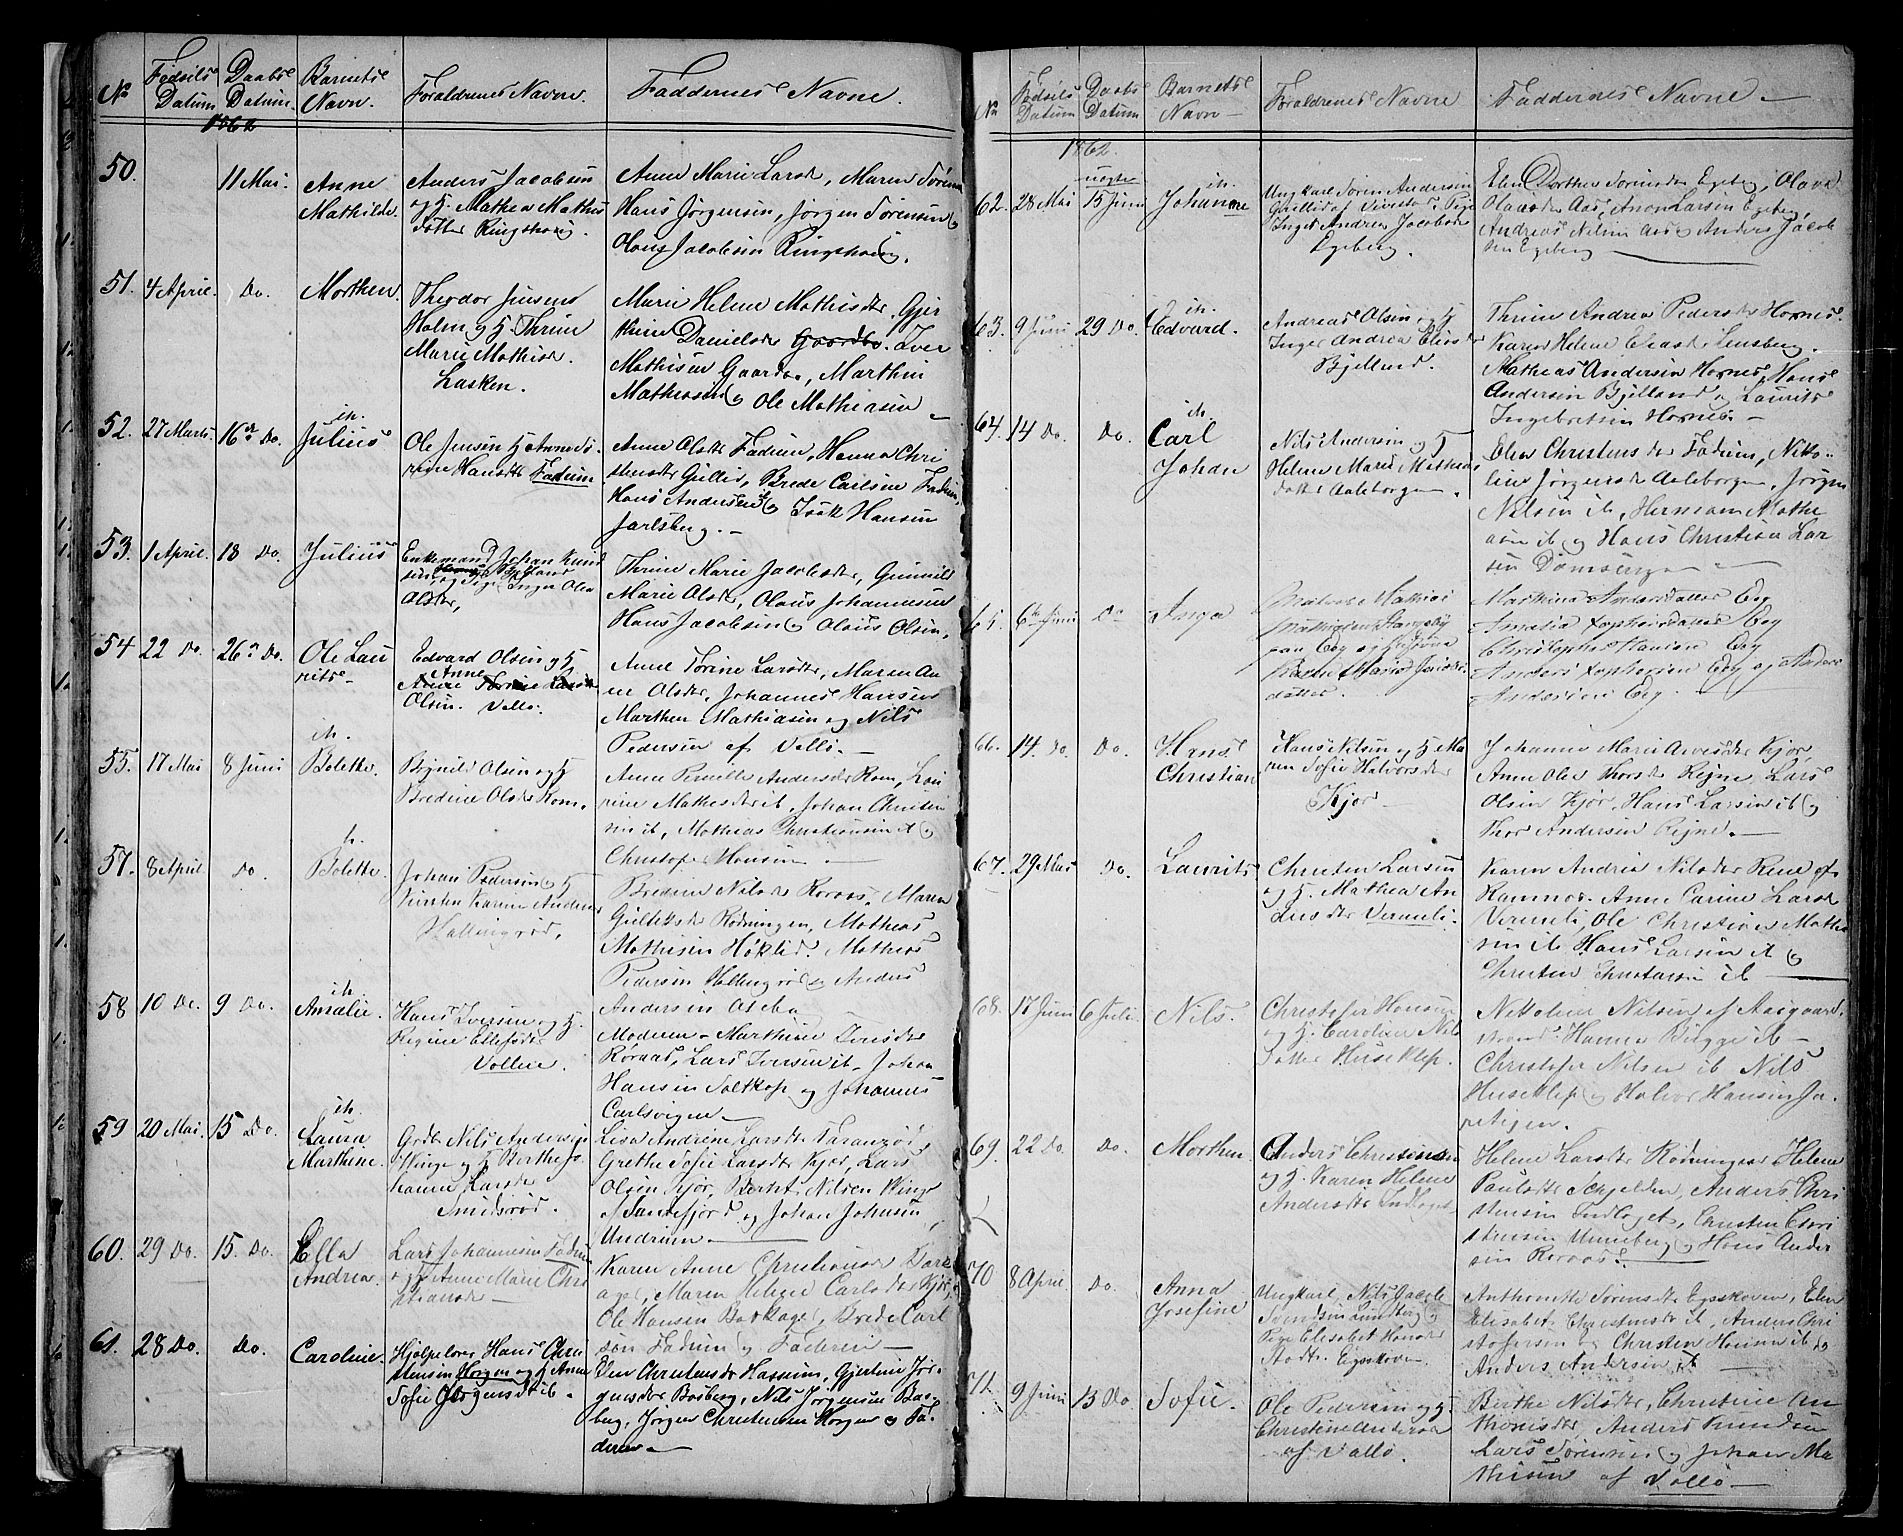 No
Fødsels Datum
Daabs Datum.
Barnets Navn.
Forældrenes Navne.
Faddernes Navne.
1862
50.
11 Mai.
Anne
Mathilde.
Anders Jacobsen
og H. Mathea Mathis
Datter Ringshoug.
Anne Marie Larsd, Maren Søren
Hans Jørgensen, Jørgen Sørensen &
Olaus Jacobsen Ringshoug.
51.
4 April.
Do.
Morthen.
Theodor Jensens
Holm og H. Thrine
Marie Mathisd.
Lasken.
Marie Helene Mathisdtr, Gjer
thine Danielsdr Gaardbo. Iver
Mathisen Gaardbo, Marthin
Mathiasen & Ole Mathiasen
52.
27 Marts
16de Do.
ih.
Julius
Ole Jensen H Anne So
rine Hansdtr Fadum
Anne Olsdtr Fadum, Hanna Chri
stensdtr Gullid, Brede Carlsen Fadum,
Hans Andersen & Isak Hansen
Jarlsberg.
53.
1 April.
18 Do.
Julius
Enkemand Johan Knud
sen og Pige Inger Olea
Olsdtr,
Thrine Marie Jacobsdtr, Gunnild
Marie Olsd, Olaus Johannesen
Hans Jacobsen & Olaus Olsen.
54
22 Do.
26de Do.
Ole Lau
rits
Edvard Olsen og H
Anne
Olsen. Vallø.
Anne Torine Larsdtr, Maren An
ne Olsdtr, Johannes Hansen
Marthen Mathiasen og Nils
Pedersen af Vallø.
55.
17 Mai
8 Juni
ih.
Bolette.
Brynild Olsen og H
Bredine Olsdtr Rom.
Anne Pernille Andersdtr Rom, Lou
rine Mathisdtr ib, Johan Christen
sen ib, Mathias Christensen ib &
Christofer Hansen
57.
8 April
Do.
h.
Bolette.
Johan Pedersen & H
Kirsten Karine Anders
Hallingrød.
Bredine Nilsdtr Roraas, Maren
Gulleksdtr Rødningen, Mathias
Mathisen Høklid. Mathias
Pedersen Hallingrød og Anders
Andersen Aleby
58
10 Do.
9 Do.
ih.
Amalie.
Hans Iversen og H.
Regine Ellefsdtr
Vollen.
Moderen - Marthine Iversdtr
Røraas, Lars Iversen ib, Johan
Hansen Saltkop og Johannes
Carlsvigen
59
20 Mai.
15 Do.
ih.
Laura
Marthine.
Grdb. Nils Andersen
Winge og H Berthe Jo
hanne Larsdtr
Smidsrød.
Lisa Andrine Larsdtr Taranrød,
Grethe Sofie Larsdtr Kjær, Lars
Olsen Kjør, Bernt Nilsen Winge
af Sandefjord og Johan Johnsen
Undrum.
60.
29 Do.
15. Do.
Ella
Andrea.
Lars Johannesen Fadum
og H Anne Marie Chri
stiansdtr
Karen Anne Christiansdtr Bark
aager, Maren Helene Carlsdtr Kjør,
Ole Hansen Barkager, Brede Carl
sen Fadum & Faderen
61.
28 Do.
Do.
Caroline.
Hjælpelærer Hans Chri
stensen Horgen og H Anne
Sofie Jørgensdt ib.
Elen Christensdtr Hassum, Gjertine Jør
gensdtr Basberg, Nils Jørgensen Bas
berg, Jørgen Christensen Horgen og Fa
deren
No
Fødsels Datum
Daabs Datum
Barnets Navn
Forældrenes Navne
Faddernes Navne
1862.
62.
28 Mai
uægte
15 Juni
ih.
Johanne
Ungkarl Søren Andersen
Gullid af Vivestad & Pige
Inger Andrea Jacobsdtr
Egeberg.
Elen Dorthea Sørensdtr Egeberg, Olava
Olausdtr Aas, Anon Larsen Egeberg,
Andreas Nilsen Aas & Anders Jacob
sen Egeberg
63.
9 Juni
29 Do.
ih.
Edvard.
Andreas Olsen og H
Inger Andrea Eliasdtr
Bjelland.
Thrine Andrea Pedersdtr Hornes.
Karen Helene Eliasdtr Lensberg.
Mathias Andersen Hornes, Hans
Andersen Bjelland & Laurits
Ingebretsen Hornes.
64.
14 Do.
Do.
ih.
Carl
Johan
Nils Andersen og H
Helene Marie Mathias
datter Aaleborgen.
Elen Christensdtr Fadum, Nitto-
line Jørgensdtr Aaleborgen, Jørgen
Nilsen ib, Herman Mathi
asen ib og Hans Christian Lar
sen
65.
6te Juni
Do
Inga
Mathias
Mathiesen
paa Eeg og Hustrue
Karen Marie Jacobs
datter.
Mathina Andersdatter Eeg
Amalia Tophersdatter Eeg
Christopher Hansen Eeg
Anders Tophersen Eeg og Anders
Andersen Eeg.
66.
14. Do
Do.
Hans
Christian
Hans Nilsen og H Ma
ren Sofie Halvorsdtr
Kjør
Johanne Marie Arvesdtr Kjør,
Anne Olea Thorsdtr Rigne, Lars
Olsen Kjør, Hans Larsen ib &
Thor Andersen Rigne.
67.
29 Mai
Do.
Laurits
Christen Larsen
og H. Mathea An
dersdtr Vermeli.
Karen Andrea Nilsdtr Rene af
Ramnes. Anne Carine Larsdtr
Vermeli, Ole Christian Mathi
sen ib Hans Larsen ib &
Christen Christensen ib
68.
17 Juni
6 Juli.
Nils.
Christofer Hansen
og H. Caroline Nils
Datter Huseklep.
Nikoline Nilsen af Aasgaard
strand, Hanna Bügge ib
Christofer Nilsen ib Nils
Huseklep og Halvor Hansen Ja
69.
22 Do.
Do.
Morthen
Anders Christensen
og H. Karen Helene
Andersdtr Indlaget
Helene Larsdtr Rødningen, Helene
Paulsdtr Skjelden, Anders Chri
stensen Indlaget, Christen Chri
stensen Unneberg & Hans Ander
sen Roraas.
70
8 April
Do.
Anna
Josefine
Ungkarl Nils Jacob
Svendsen Lundberg &
Pige Elisabet Hansdtr
Stadtr. Eigsskoven
Anthonette Sørensdtr Eigsskoven, Elen
Elisabet Christensdtr ib, Anders Chri
stofersen og Christen Hansen ib &
Anders Andersen ib
71.
9 Juni
13 Do
Sofie.
Ole Pedersen og H.
Christine Andersdtr
af Vallø.
Berthe Nilsdtr, Christine An
thonisdtr, Anders Knudsen
Lars Sørensen & Johan Ma
thisen af Vallø